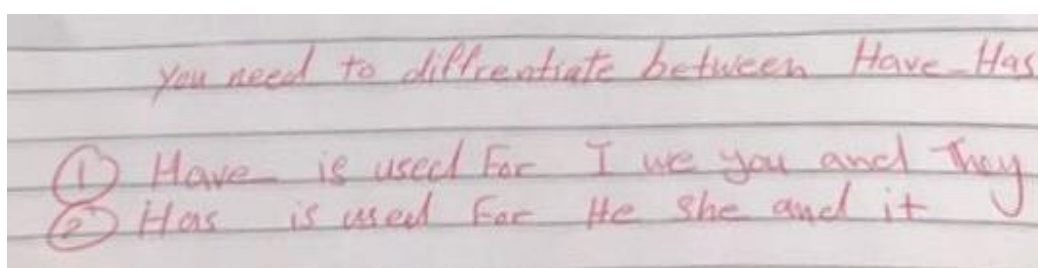 You need to diffrentiate between Have_Has
① Have is used For I we you and They
② Has is used For He She and it